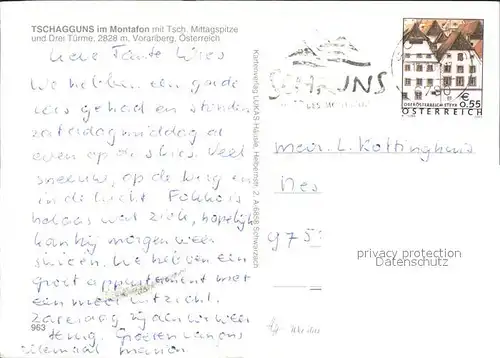 TSCHAGGUNS im Montafon mit Tsch. Mittagspitze
und Drei Türme, 2828 m, Vorarlberg, Österreich
Lieve Tante
We hebben een goede
reis gehad en stonden
zaterdagmiddag al
even op de skies. Veel
sneeuw, op de berg en
in de lucht
helaas wat ziek, hopelijk
kan hij morgen weer
skieen. We hebben een
groot appartement met
een mooi uitzicht.
Zaterdag zijn we weer
terug. Groeten van ons
allemaal
963
Kartenverlag LUKAS Häusle, Hellenstr. 2, A-6858 Schwarzach
SCHRUNS
OBERÖSTERREICH-STEYR
€ 0,55
ÖSTERREICH
mevr. L. Kottinghuis
Nes
975
privacy protection
Datenschutz